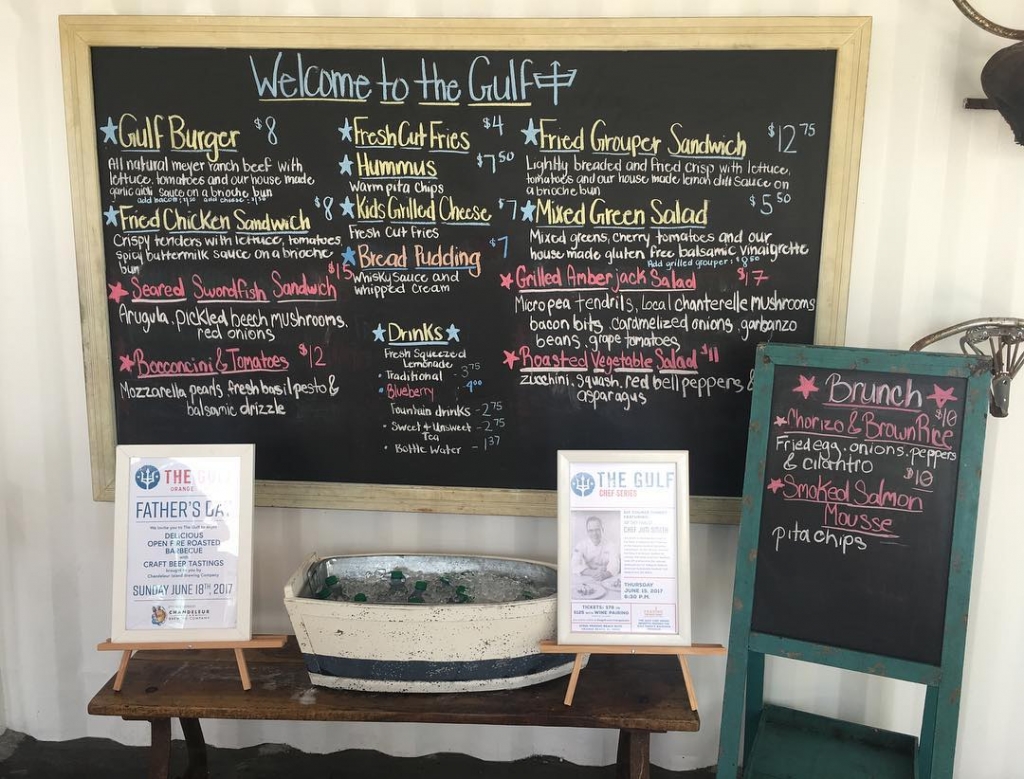 Welcome to the Gulf
Gulf Burger $8
All natural meyer ranch beef with
lettuce, tomatoes and our house made
garlic aioli sauce on a brioche bun
add bacon: and cheese:
Fried Chicken Sandwich $8
Crispy tenders with lettuce, tomatoes
spicy buttermilk sauce on a brioche
bun
Seared Swordfish Sandwich $15
Arugula, pickled beech mushrooms,
red onions
Bocconcini & Tomatoes $12
Mozzarella pearls, fresh basil pesto &
balsamic drizzle
Fresh Cut Fries $4
Hummus $7 50
Warm pita chips
Kids Grilled Cheese $7
Fresh Cut Fries
Bread Pudding $7
Whisky Sauce and
whipped cream
Drinks
Fresh Squeezed
Lemonade
• Traditional 3 75
• Blueberry - 4 00
Fountain drinks - 2 75
• Sweet & Unsweet - 2 75
Tea
• Bottle Water - 1 37
Fried Grouper Sandwich $12 75
Lightly breaded and fried crisp with lettuce,
tomatoes and our house made lemon dill sauce on
a brioche bun
Mixed Green Salad $5 50
Mixed greens, cherry tomatoes and our
house made gluten free balsamic vinaigrette
Add grilled grouper: $8 50
Grilled Amberjack Salad $17
Micro pea tendrils, Local chanterelle mushrooms
bacon bits, caramelized onions, garbanzo
beans, grape tomatoes
Roasted Vegetable Salad $11
zucchini, squash, red bell peppers &
asparagus
Brunch
$10
Chorizo & Brown Rice
Fried egg, onions, peppers
& cilantro
$10
Smoked Salmon
Mousse
pita chips
THE GULF
ORANGE
FATHER'S DAY
We invite you to The Gulf to enjoy
DELICIOUS
OPEN FIRE ROASTED
BARBECUE
with
CRAFT BEER TASTINGS
brought to you by
Chandeleur Island Brewing Company
SUNDAY JUNE 18TH, 2017
CHANDELEUR
THE GULF
CHEF SERIES
THURSDAY
JUNE 15, 2017
6:30 P.M.
WINE PAIRING